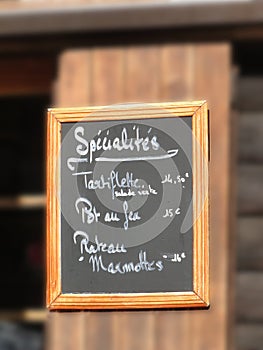 Spécialités
Tartiflette 14,50€
salade verte
Pot au feu 15€
Rateau
Marmottes 16€